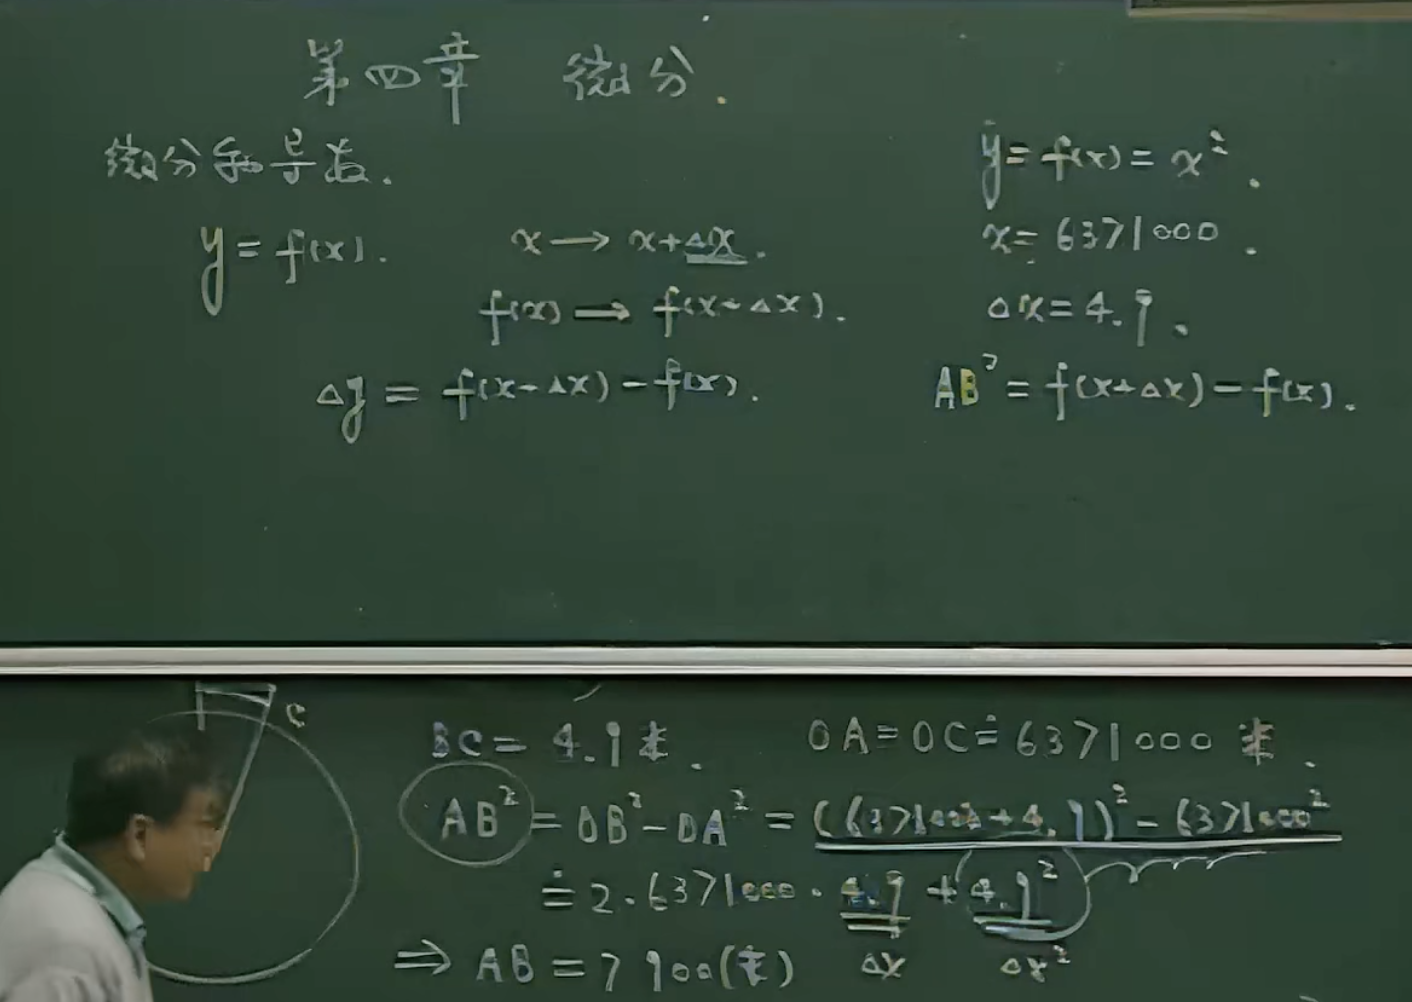 第四章 微分.
微分和导数.
y = f(x). x → x+Δx.
f(x) → f(x+Δx).
Δy = f(x+Δx) - f(x).
y = f(x) = x².
x = 6371000.
Δx = 4.9.
AB² = f(x+Δx) - f(x).
C
BC = 4.9米. OA = OC ≐ 6371000 米.
AB² = OB² - OA² = (6371000+4.9)² - 6371000²
≐ 2·6371000·4.9 + 4.9²
⇒ AB = 7900(米) Δx Δx²